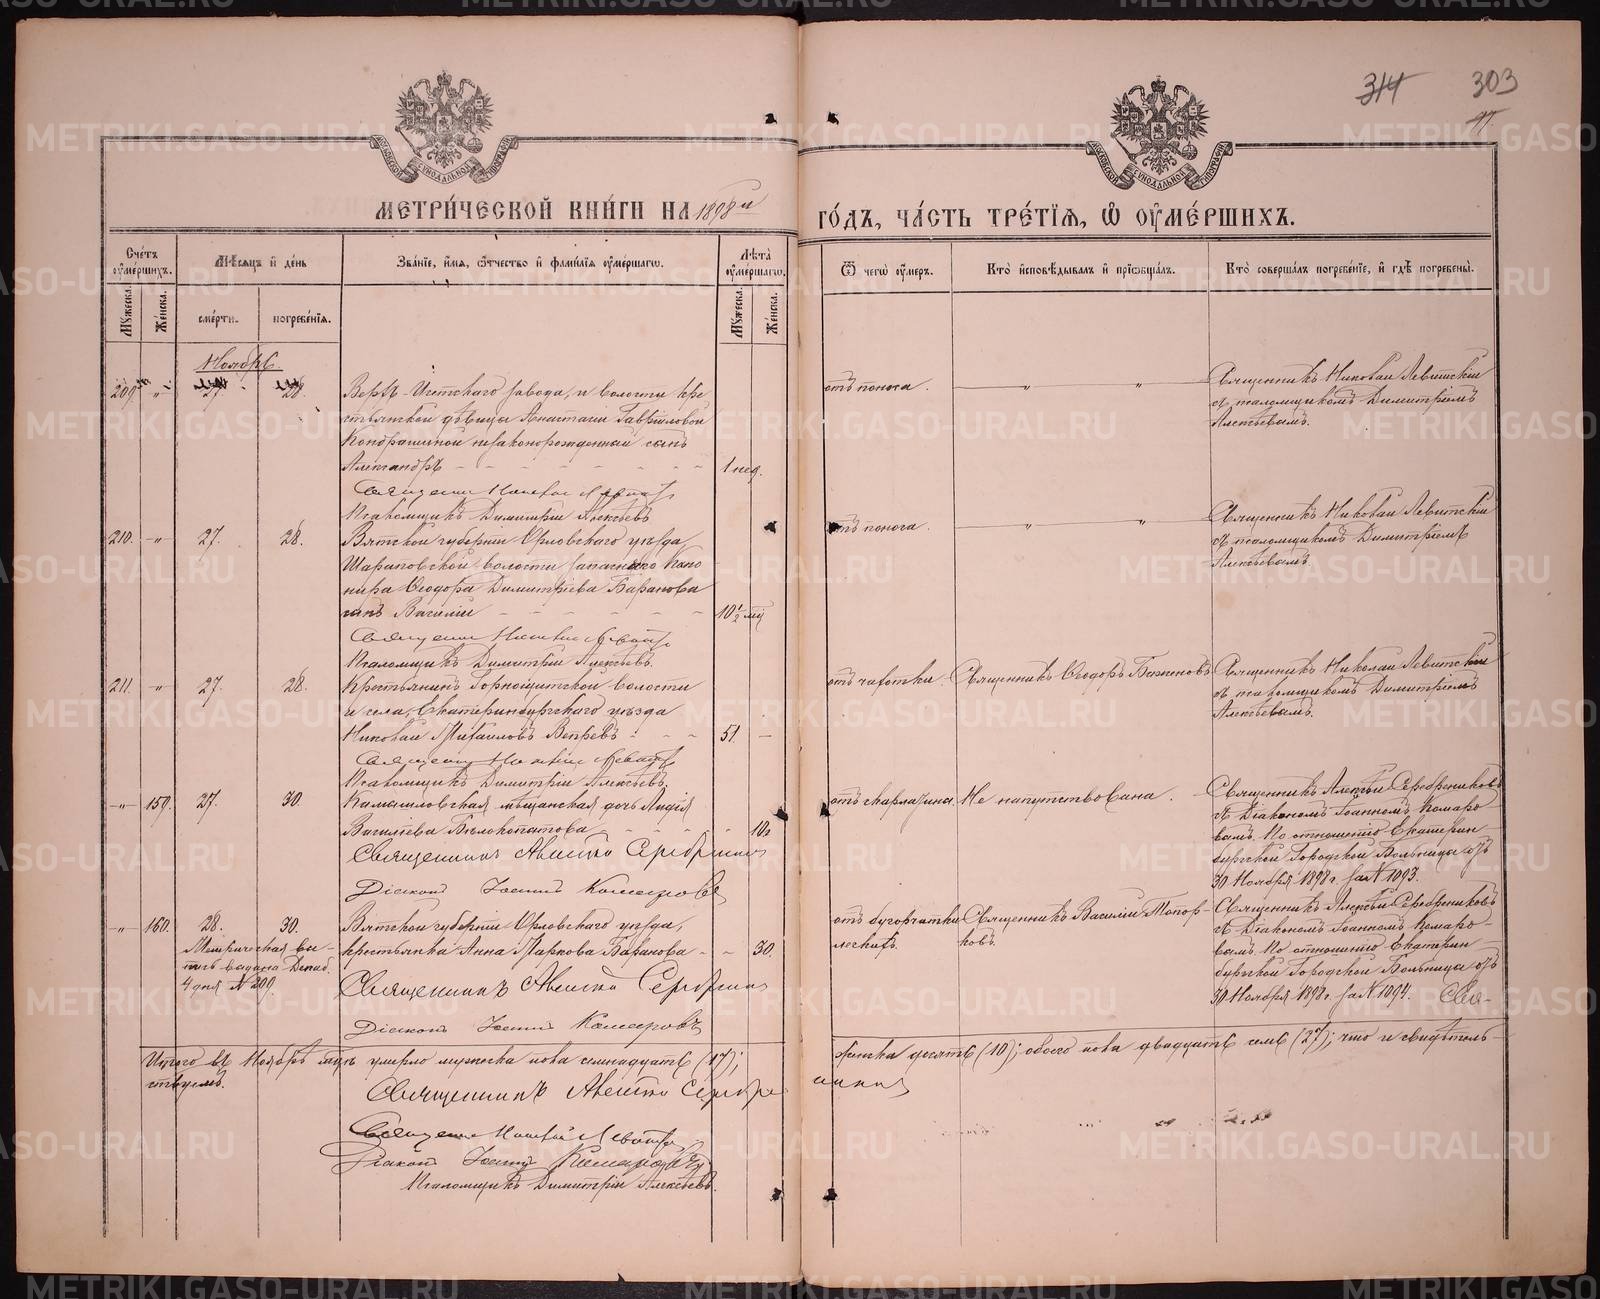 314 303
МЕТРИ́ЧЕСКОЙ КНИ́ГИ НА 1898й ГО́ДЪ, ЧА́СТЬ ТРЕ́ТІѦ, Ѽ ОУМЕ́РШИХЪ.
Сче́тъ оуме́ршихъ.
Мѣ́сяцъ и҆ де́нь
Зва́нїе, и҆́мя, ѻ҆́тчество и҆ фамилїя оуме́ршагѡ.
Лѣ́та оуме́ршагѡ.
Ѿ чегѡ̀ оу́меръ.
Кто̀ и҆сповѣ́дывалъ и҆ прїѡбща́лъ.
Кто̀ соверша́лъ погребе́нїе, и҆ гдѣ̀ погребены̀.
Мꙋ́жеска.
Же́нска.
сме́рти.
погребе́нїя.
Мꙋ́жеска.
Же́нска.
Ноябрь.
209 " 27. 28. Верхъ Исетскаго завода, и волости кре
стьянской дѣвицы Анастасіи Гавріиловой
Кондрашиной незаконорожденный сынъ
Александръ 1 нед.
отъ поноса. " "
Священникъ Николай Левитскій
съ псаломщикомъ Димитріемъ
Алексѣевымъ.
Священникъ Николай Левитскій
Псаломщикъ Димитрій Алексѣевъ
210. " 27. 28. Вятской губерніи Орловскаго уѣзда,
волости запаснаго Кано
нира Ѳеодора Димитріева Баранова
сынъ Василій 10 1/2 мѣ
отъ поноса. " "
Священникъ Николай Левитскій
съ псаломщикомъ Димитріемъ
Алексѣевымъ.
Священникъ Николай Левитскій
Псаломщикъ Димитрій Алексѣевъ.
211. " 27. 28. Крестьянинъ Горнощитской волости
и села, Екатеринбургскаго уѣзда
Николай Михаиловъ Вепревъ 51.
отъ чахотки. Священникъ Ѳеодоръ Баженовъ
Священникъ Николай Левитскій
съ псаломщикомъ Димитріемъ
Алексѣевымъ.
Священникъ Николай Левитскій
Псаломщикъ Димитрій Алексѣевъ.
" 159. 27. 30. Камышловская мѣщанская дочь Лидія
Василіева Бѣлокопытова 10
отъ скарлатины. Не напутствована.
Священникъ Алексѣй Серебренниковъ
съ Діакономъ Іоанномъ Комаро
вымъ. По отношенію Екатерин
бургской Городской Больницы отъ
30 Ноября 1898 г. за N 1093.
Священникъ Алексѣй Серебренниковъ
Діаконъ Іоаннъ Комаровъ
" 160. 28. 30. Вятской губерніи Орловскаго уѣзда,
крестьянка Анна Маркова Баранова 30.
Метрическая вы-
пись выдана Декаб.
4 дня N 209.
отъ бугорчатки
легкихъ.
Священникъ Василій Топор-
ковъ.
Священникъ Алексѣй Серебренниковъ
съ Діакономъ Іоанномъ Комаро-
вымъ. По отношенію Екатерин
бургской Городской Больницы отъ
30 Ноября 1898 г. за N 1094. Свя-
Священникъ Алексѣй Серебренни
Діаконъ Іоаннъ Комаровъ
Итого въ Ноябрѣ мѣсяцѣ умерло мужеска пола семнадцать (17); женска десять (10); обоего пола двадцать семь (27); что и свидѣтель-
ствуемъ.
Священникъ Алексѣй Серебренниковъ
Священникъ Николай Левитскій
Діаконъ Іоаннъ Комаровъ
Псаломщикъ Димитрій Алексѣевъ.
METRIKI.GASO-URAL.RU